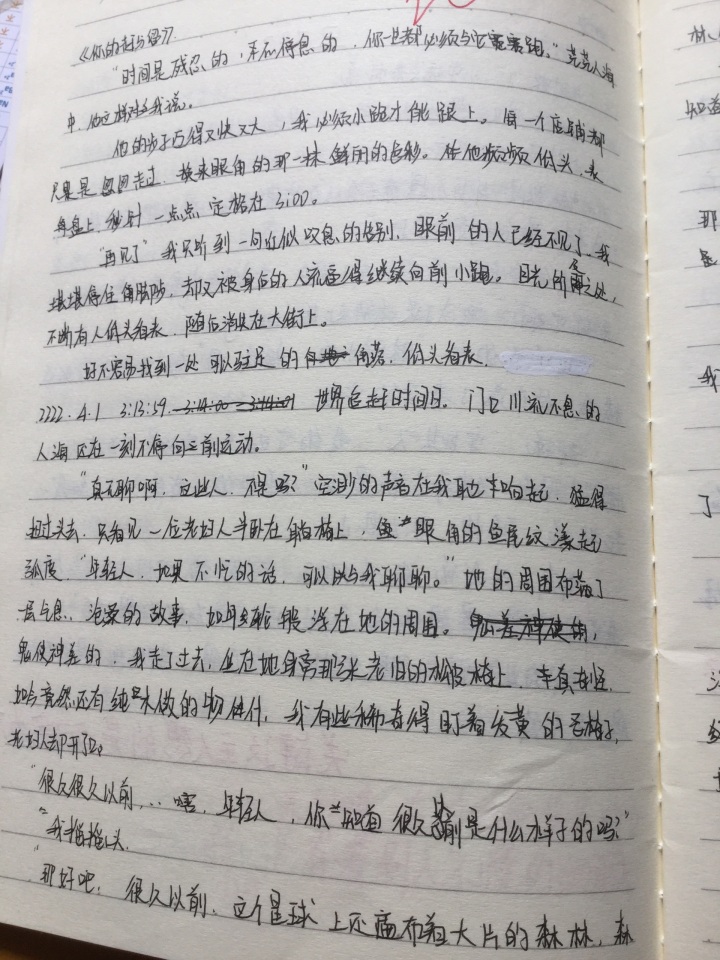 《你的
"时间是残忍的，永不停息的，你一生都必须与它赛跑。"茫茫人海
中，他这样对我说。
他的步子迈得又快又大，我必须小跑才能跟上。每一个店铺都
只是匆匆走过，换来眼角的那一抹鲜明的色彩。在他频频低头，表
盘上，秒针一点点定格在3:00。
"再见了"我只听到一句近似叹息的告别，眼前的人已经不见了，我
堪堪停住脚步，却又被身后的人流逼得继续向前小跑。目光所及之处，
不断有人低头看表，随后消失在大街上。
好不容易找到一处可以驻足的角落，低头看表，
2222.4.1 3:13:59 世界追赶时间日。门口川流不息的
人海还在一刻不停向前运动。
"真无聊啊，这些人，不是吗？"空渺的声音在我耳边响起，猛得
扭过头去，只看见一位老妇人半卧在躺椅上，眼角的鱼尾纹漾起
弧度，"年轻人，如果不忙的话，可以与我聊聊。"她的周围布满了
层气息，沧桑的故事，如年轮般浮在她的周围。鬼差神使的，
鬼使神差的，我走了过去，坐在她身旁那张老旧的木椅上，
如今竟然还有纯木做的物件，我有些稀奇得盯着发黄的老椅子，
老妇人却开了口。
"很久很久以前...嗐，年轻人，你知道很久以前是什么样子的吗？"
"我摇摇头。
"那好吧，很久以前，这个星球上还遍布着大片的森林，森